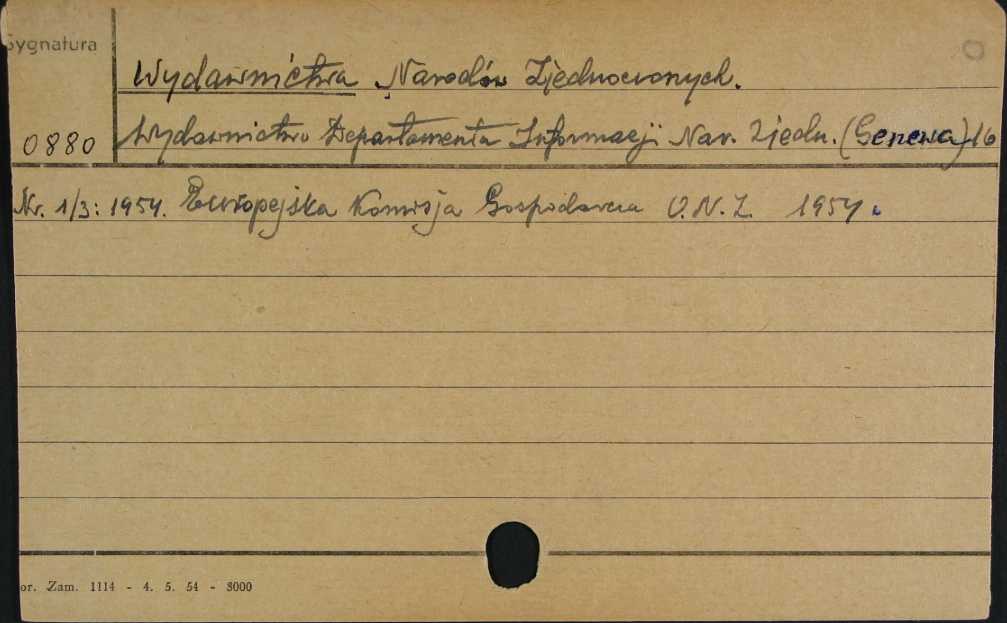 Sygnatura
Wydawnictwa Narodów Zjednoczonych.
0880
Wydawnictwo Departamentu Informacji Nar. Zjedn. (Genewa) 16
Nr. 1/3: 1954. Europejska Komisja Gospodarcza O.N.Z. 1954.
or. Zam. 1114 - 4. 5. 54 - 3000